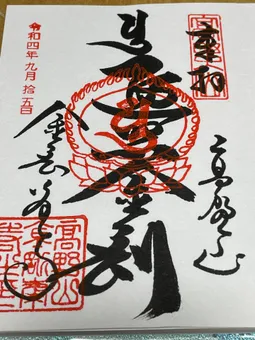 奉拝
高野山
遍照金剛
令和四年九月拾五日
金剛峯寺
高野山